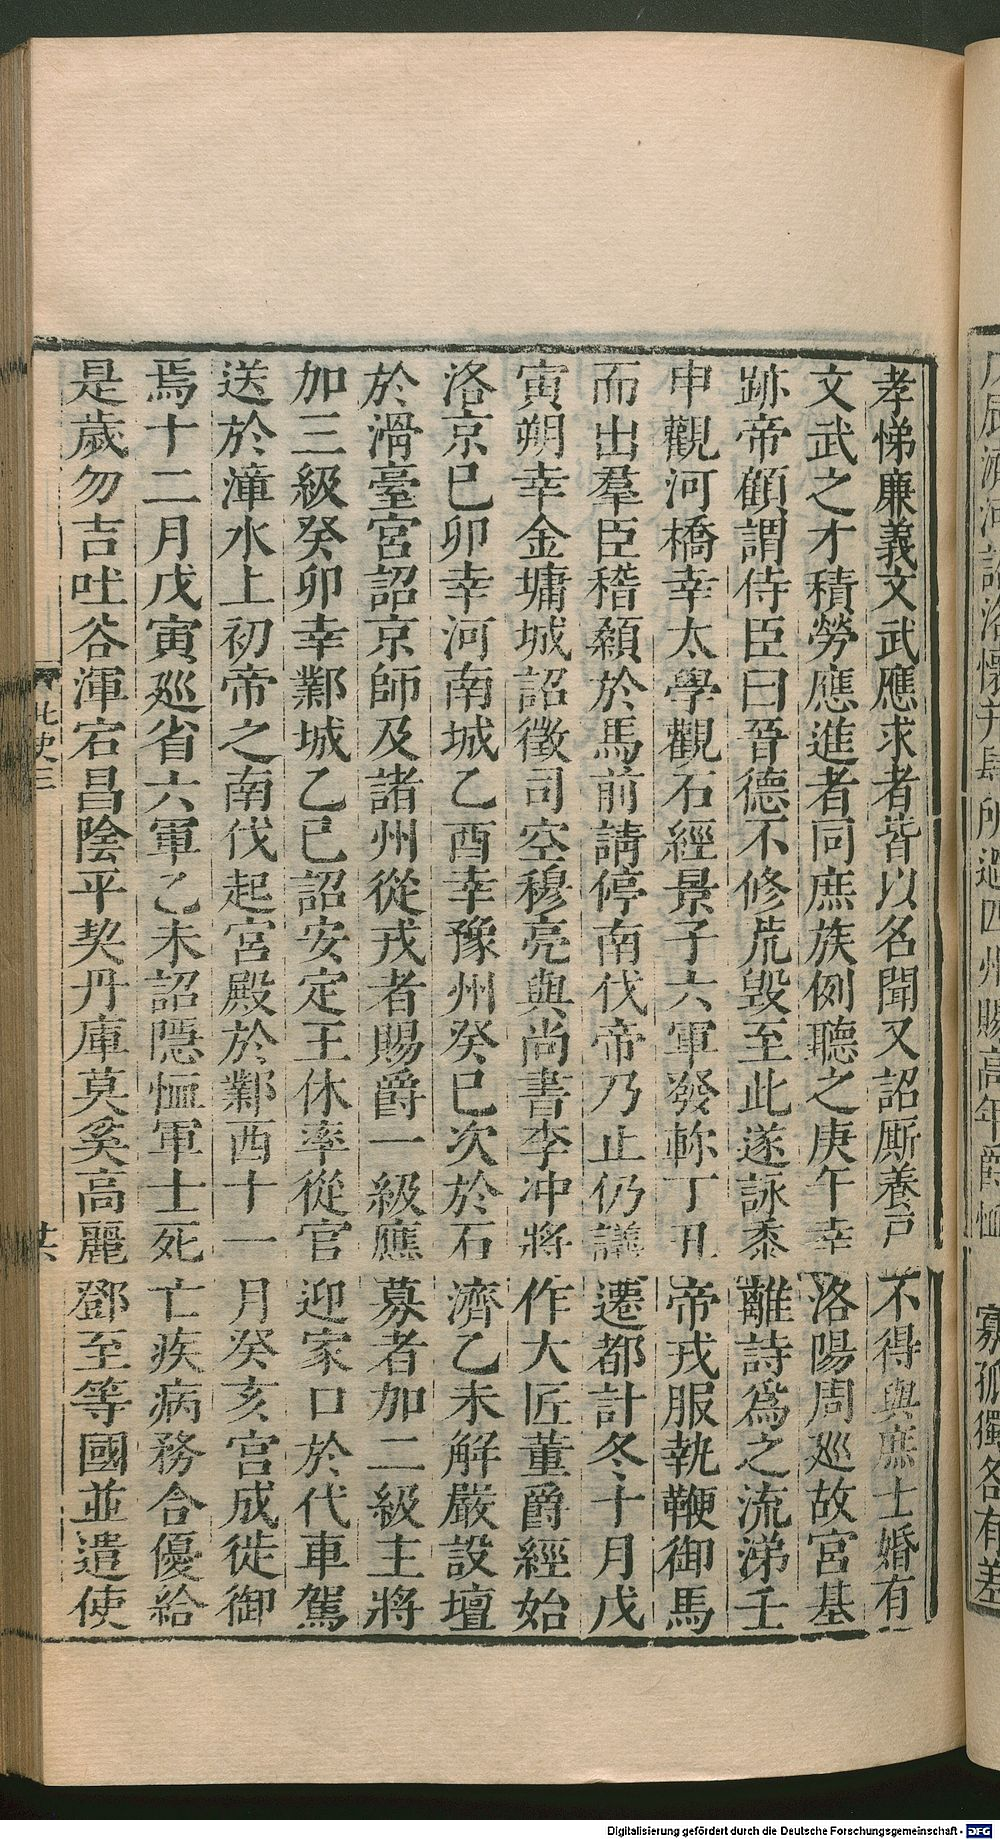 孝悌廉義文武應求者皆以名聞又詔厮養戸不得與庶士婚有
文武之才積勞應進者同庶族例聽之庚午幸洛陽周廵故宮基
跡帝顧謂侍臣曰晉德不修荒毀至此遂詠黍離詩爲之流涕壬
申觀河橋幸太學觀石經景子六軍發軫丁丑帝戎服執鞭御馬
而出羣臣稽顙於馬前請停南伐帝乃止仍議遷都計冬十月戊
寅朔幸金墉城詔徵司空穆亮與尚書李冲將作大匠董爵經始
洛京巳卯幸河南城乙酉幸豫州癸巳次於石濟乙未解嚴設壇
於滑臺宮詔京師及諸州從戎者賜爵一級應募者加二級主將
加三級癸卯幸鄴城乙巳詔安定王休率從官迎家口於代車駕
送於漳水上初帝之南伐起宮殿於鄴西十一月癸亥宮成徙御
焉十二月戊寅廵省六軍乙未詔隱恤軍士死亡疾病務合優給
是歲勿吉吐谷渾宕昌陰平契丹庫莫奚高麗鄧至等國並遣使
北史三
廿六
所過四州賜高年爵恤
寡孤獨各有差
Digitalisierung gefördert durch die Deutsche Forschungsgemeinschaft - DFG